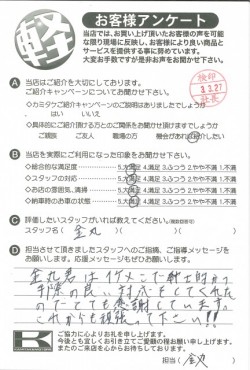 軽
お客様アンケート
当店では、お買い上げ頂いたお客様の声を可能
な限り現場に反映し、お客様により良い商品と
サービスを提供する事に努めています。
大変お手数ですが是非お声をお聞かせ下さい。
検印
3.3.27
社長
A 当店はご紹介を大切にしております。
ご紹介キャンペーンについてお聞かせ下さい。
・カミタケご紹介キャンペーンのご説明はありましたでしょうか
はい いいえ
・具体的にご紹介頂ける方とのご関係をお聞かせ頂けますでしょうか
ご親族 ご友人 職場の方 機会があればご紹介したい
B 当店を実際にご利用になった印象をお聞かせ下さい。
◇総合的な満足度 5.大満足 4.満足 3.ふつう 2.やや不満 1.不満
◇スタッフの対応 5.大満足 4.満足 3.ふつう 2.やや不満 1.不満
◇お店の雰囲気、清掃 5.大満足 4.満足 3.ふつう 2.やや不満 1.不満
◇納車時のお車の状態 5.大満足 4.満足 3.ふつう 2.やや不満 1.不満
C 評価したいスタッフがいれば教えてください。(複数回答可)
スタッフ名( 金丸 )( )( )
D 担当させて頂きましたスタッフへのご指摘、ご指導メッセージを
お願いします。応援メッセージもぜひお願いします。
金丸君はイケメンで紳士的かつ
非常の良い対応をしてくれた
のでとても感謝しています。
これからも頑張って下さい!!
K
ご協力に心よりお礼を申し上げます。
今後とも宜しくお引き立てご愛顧の程お願い申し上げます。
またのご来店を心からお待ちしております。
担当( 金丸 )